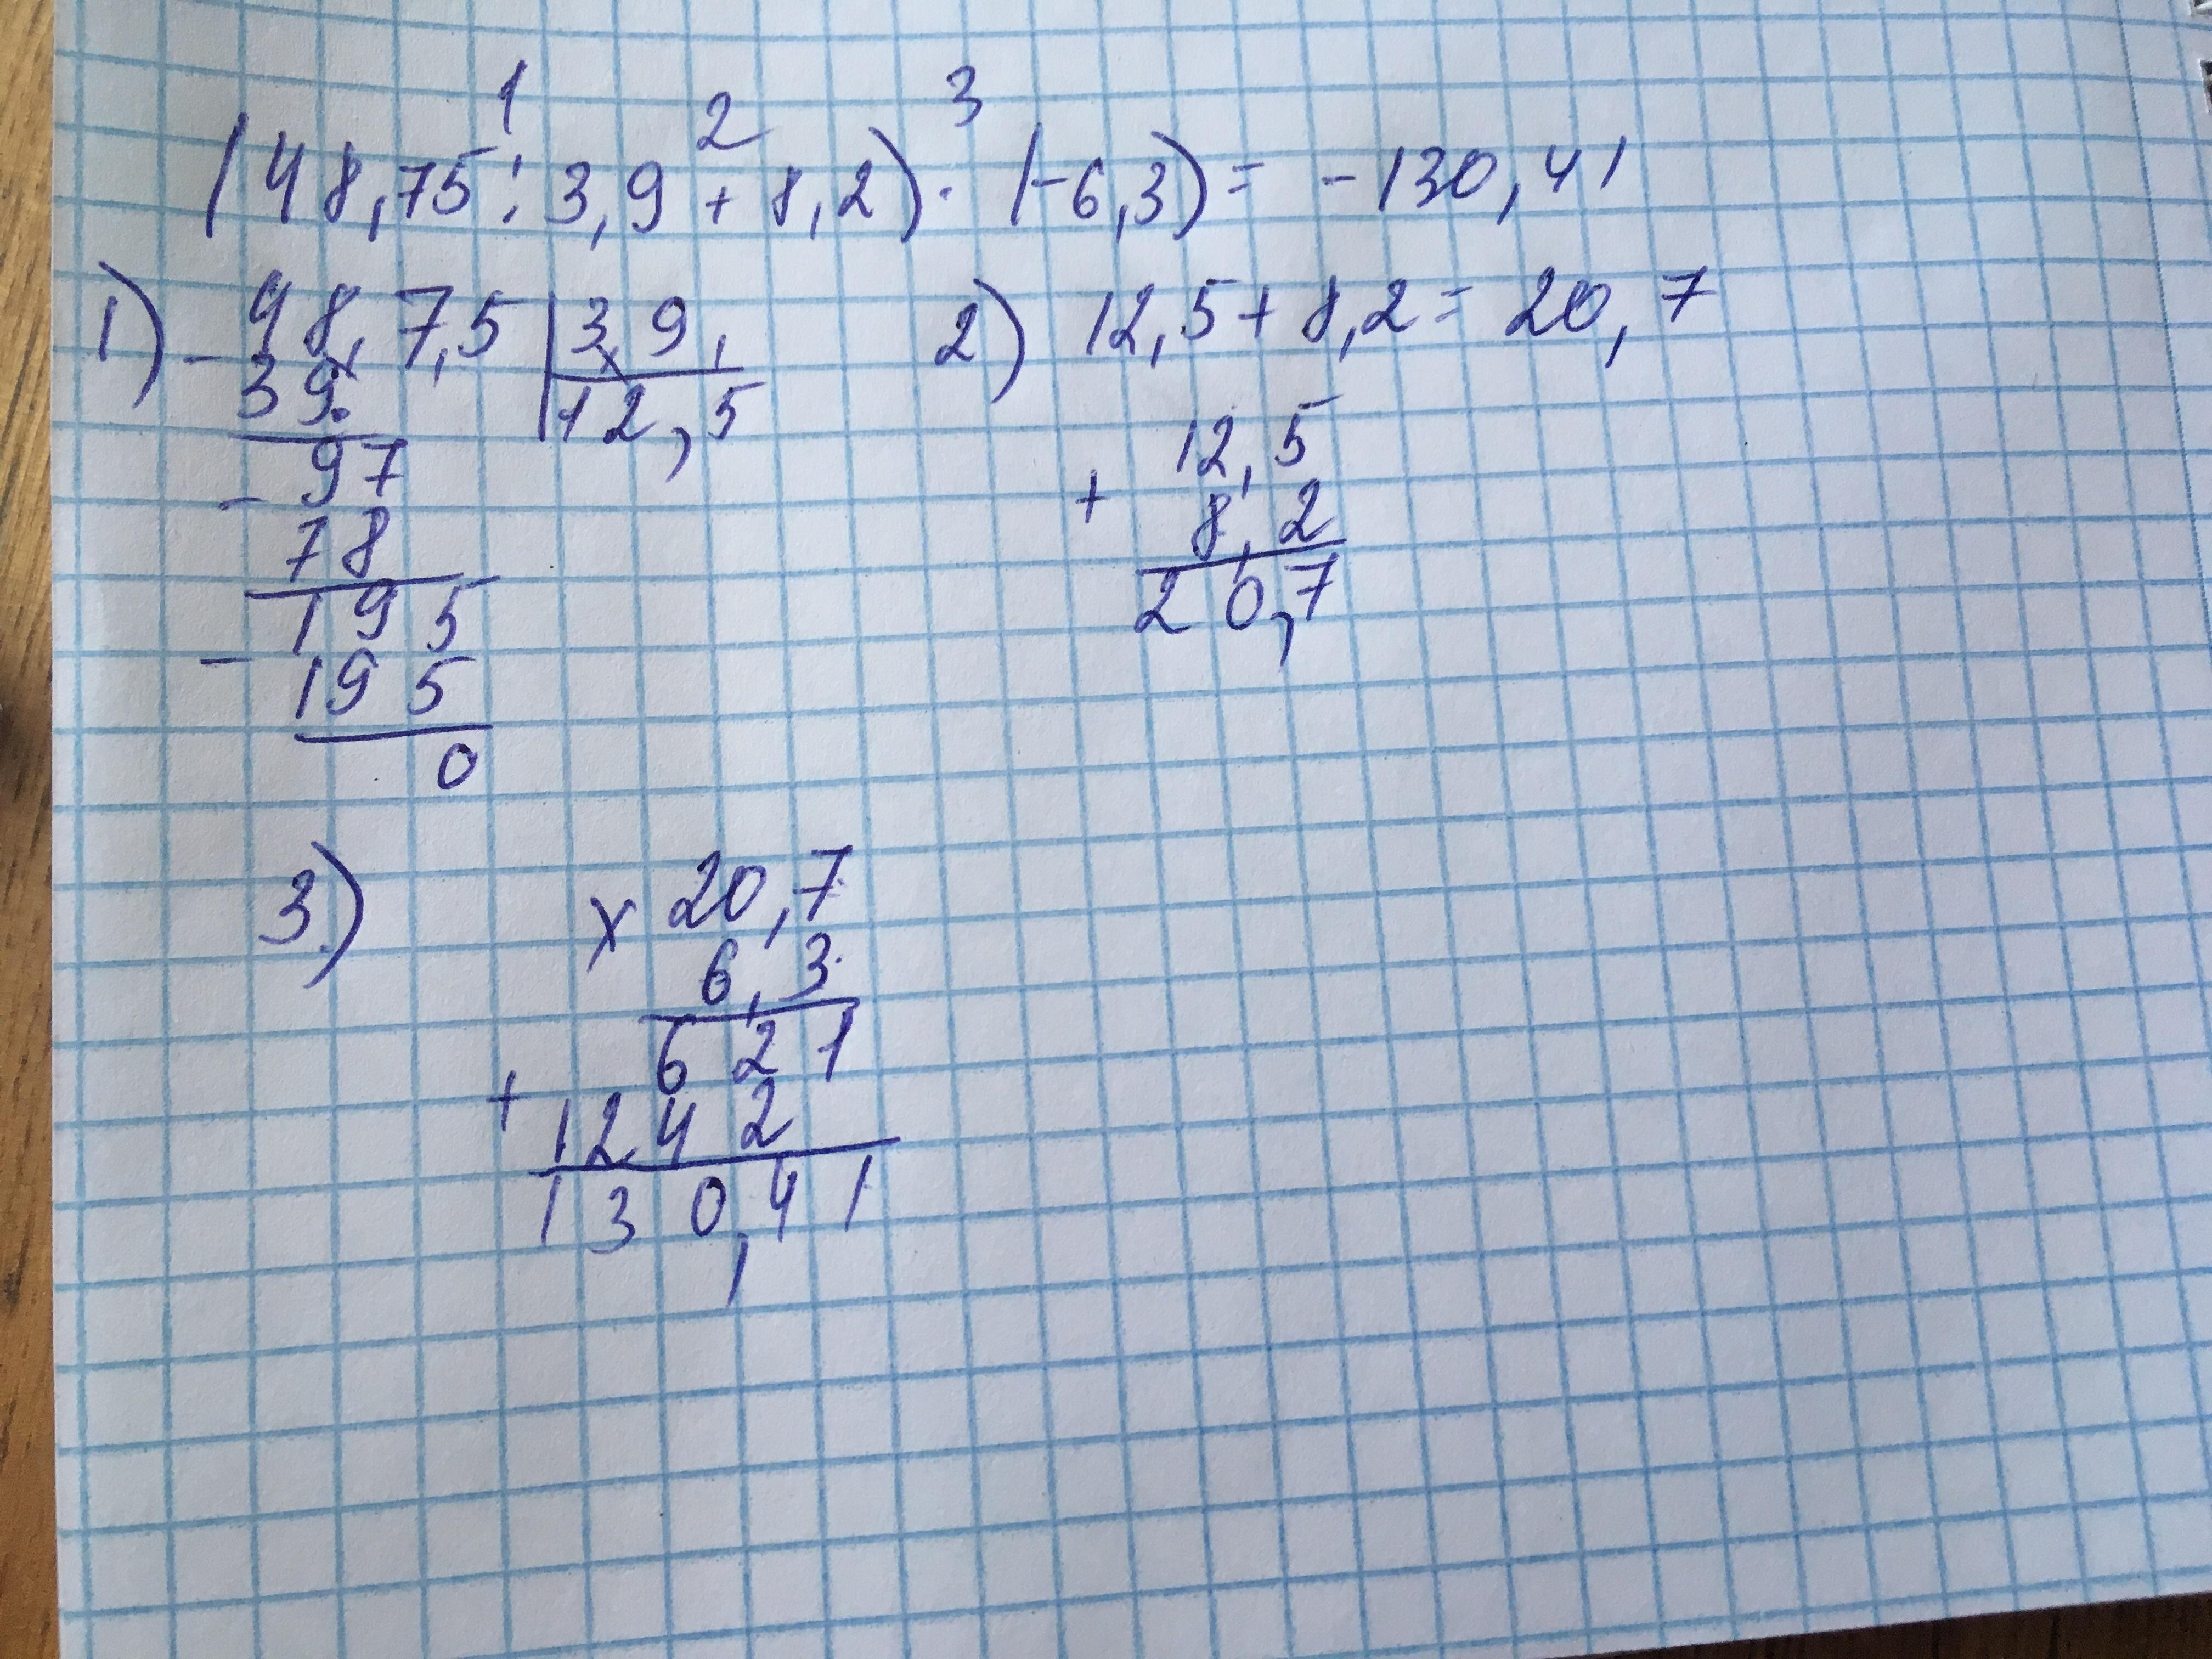 1 2 3
(48,75 : 3,9 + 8,2) · (-6,3) = -130,41
1) - 48,7,5 | 3,9,
39
12,5
- 97
78
195
- 195
0
2) 12,5 + 8,2 = 20,7
12,5
+ 8,2
20,7
3.) x 20,7
6,3
621
+ 1242
130,41